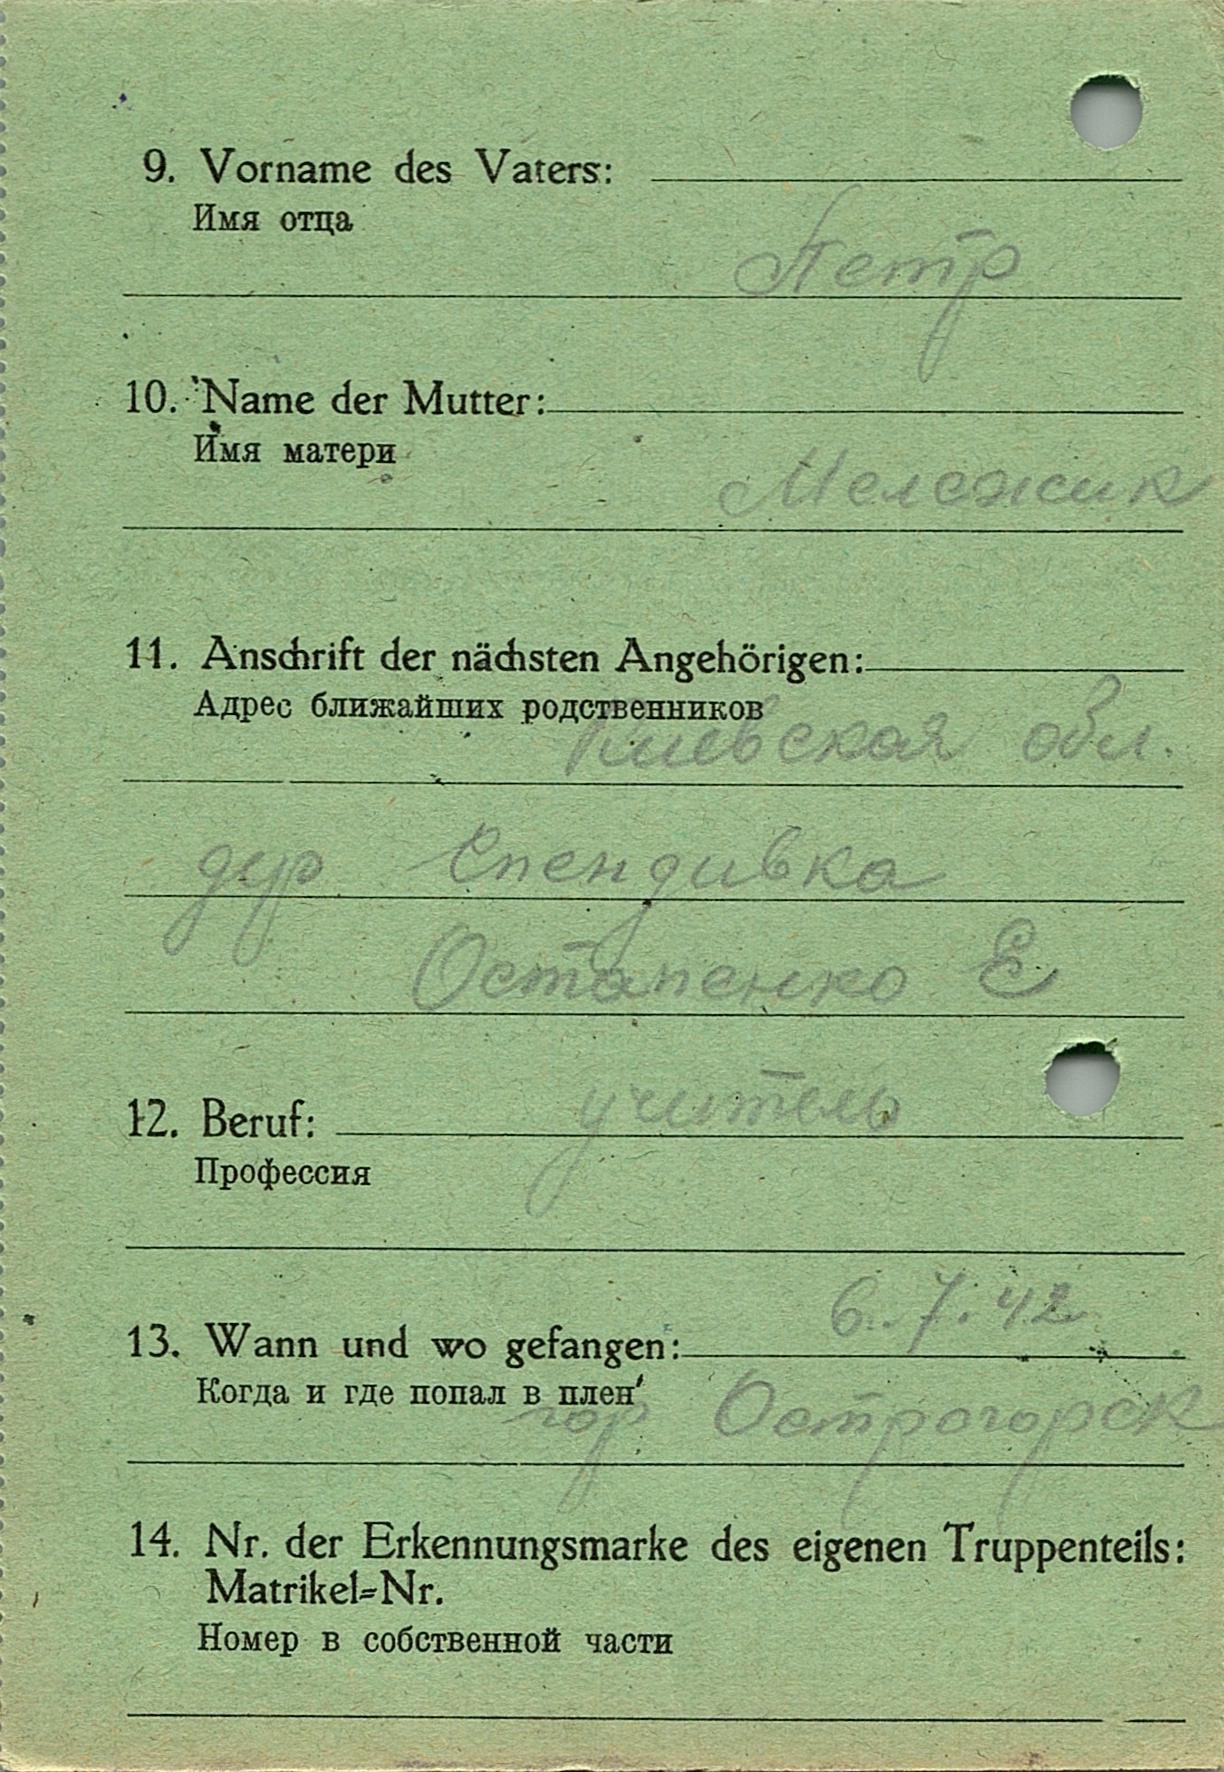 9. Vorname des Vaters:
Имя отца
Петр
10. Name der Mutter:
Имя матери
Мележик
11. Anschrift der nächsten Angehörigen:
Адрес ближайших родственников
Киевская обл.
дур Спендивка
Остапенко Е
12. Beruf: учитель
Профессия
6.7.42
13. Wann und wo gefangen:
Когда и где попал в плен
гор Острогорск
14. Nr. der Erkennungsmarke des eigenen Truppenteils:
Matrikel=Nr.
Номер в собственной части